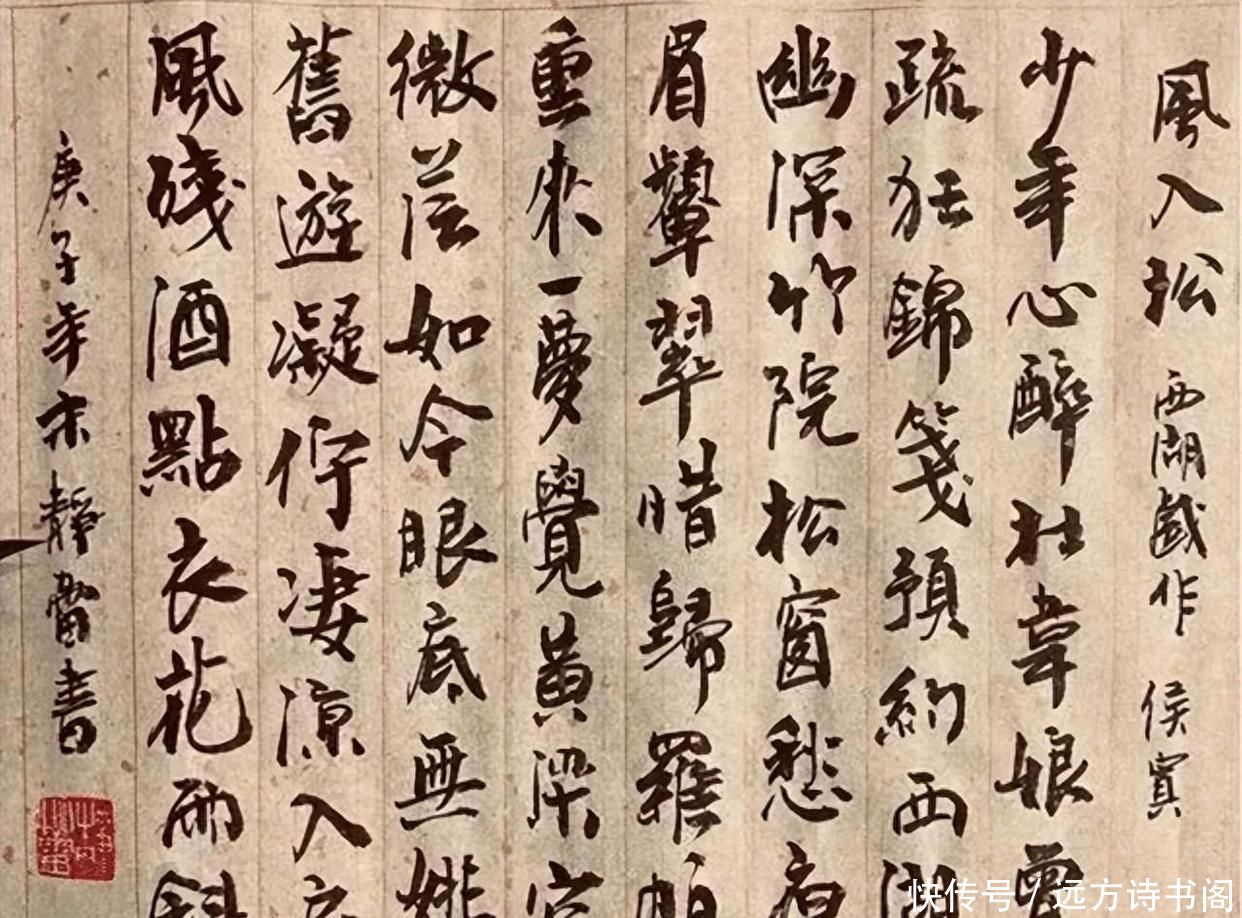 風入松 西湖戲作 侯寘
少年心醉杜韋娘曾
疏狂錦箋預約西湖
幽深竹院松窗愁夜
眉顰翠惜歸羅帕
重來一夢覺黄梁空
微茫如今眼底無姚
舊遊凝佇凄凉入扇
風殘酒點衣花雨斜
庚子年宋靜書
快传号/远方诗书阁